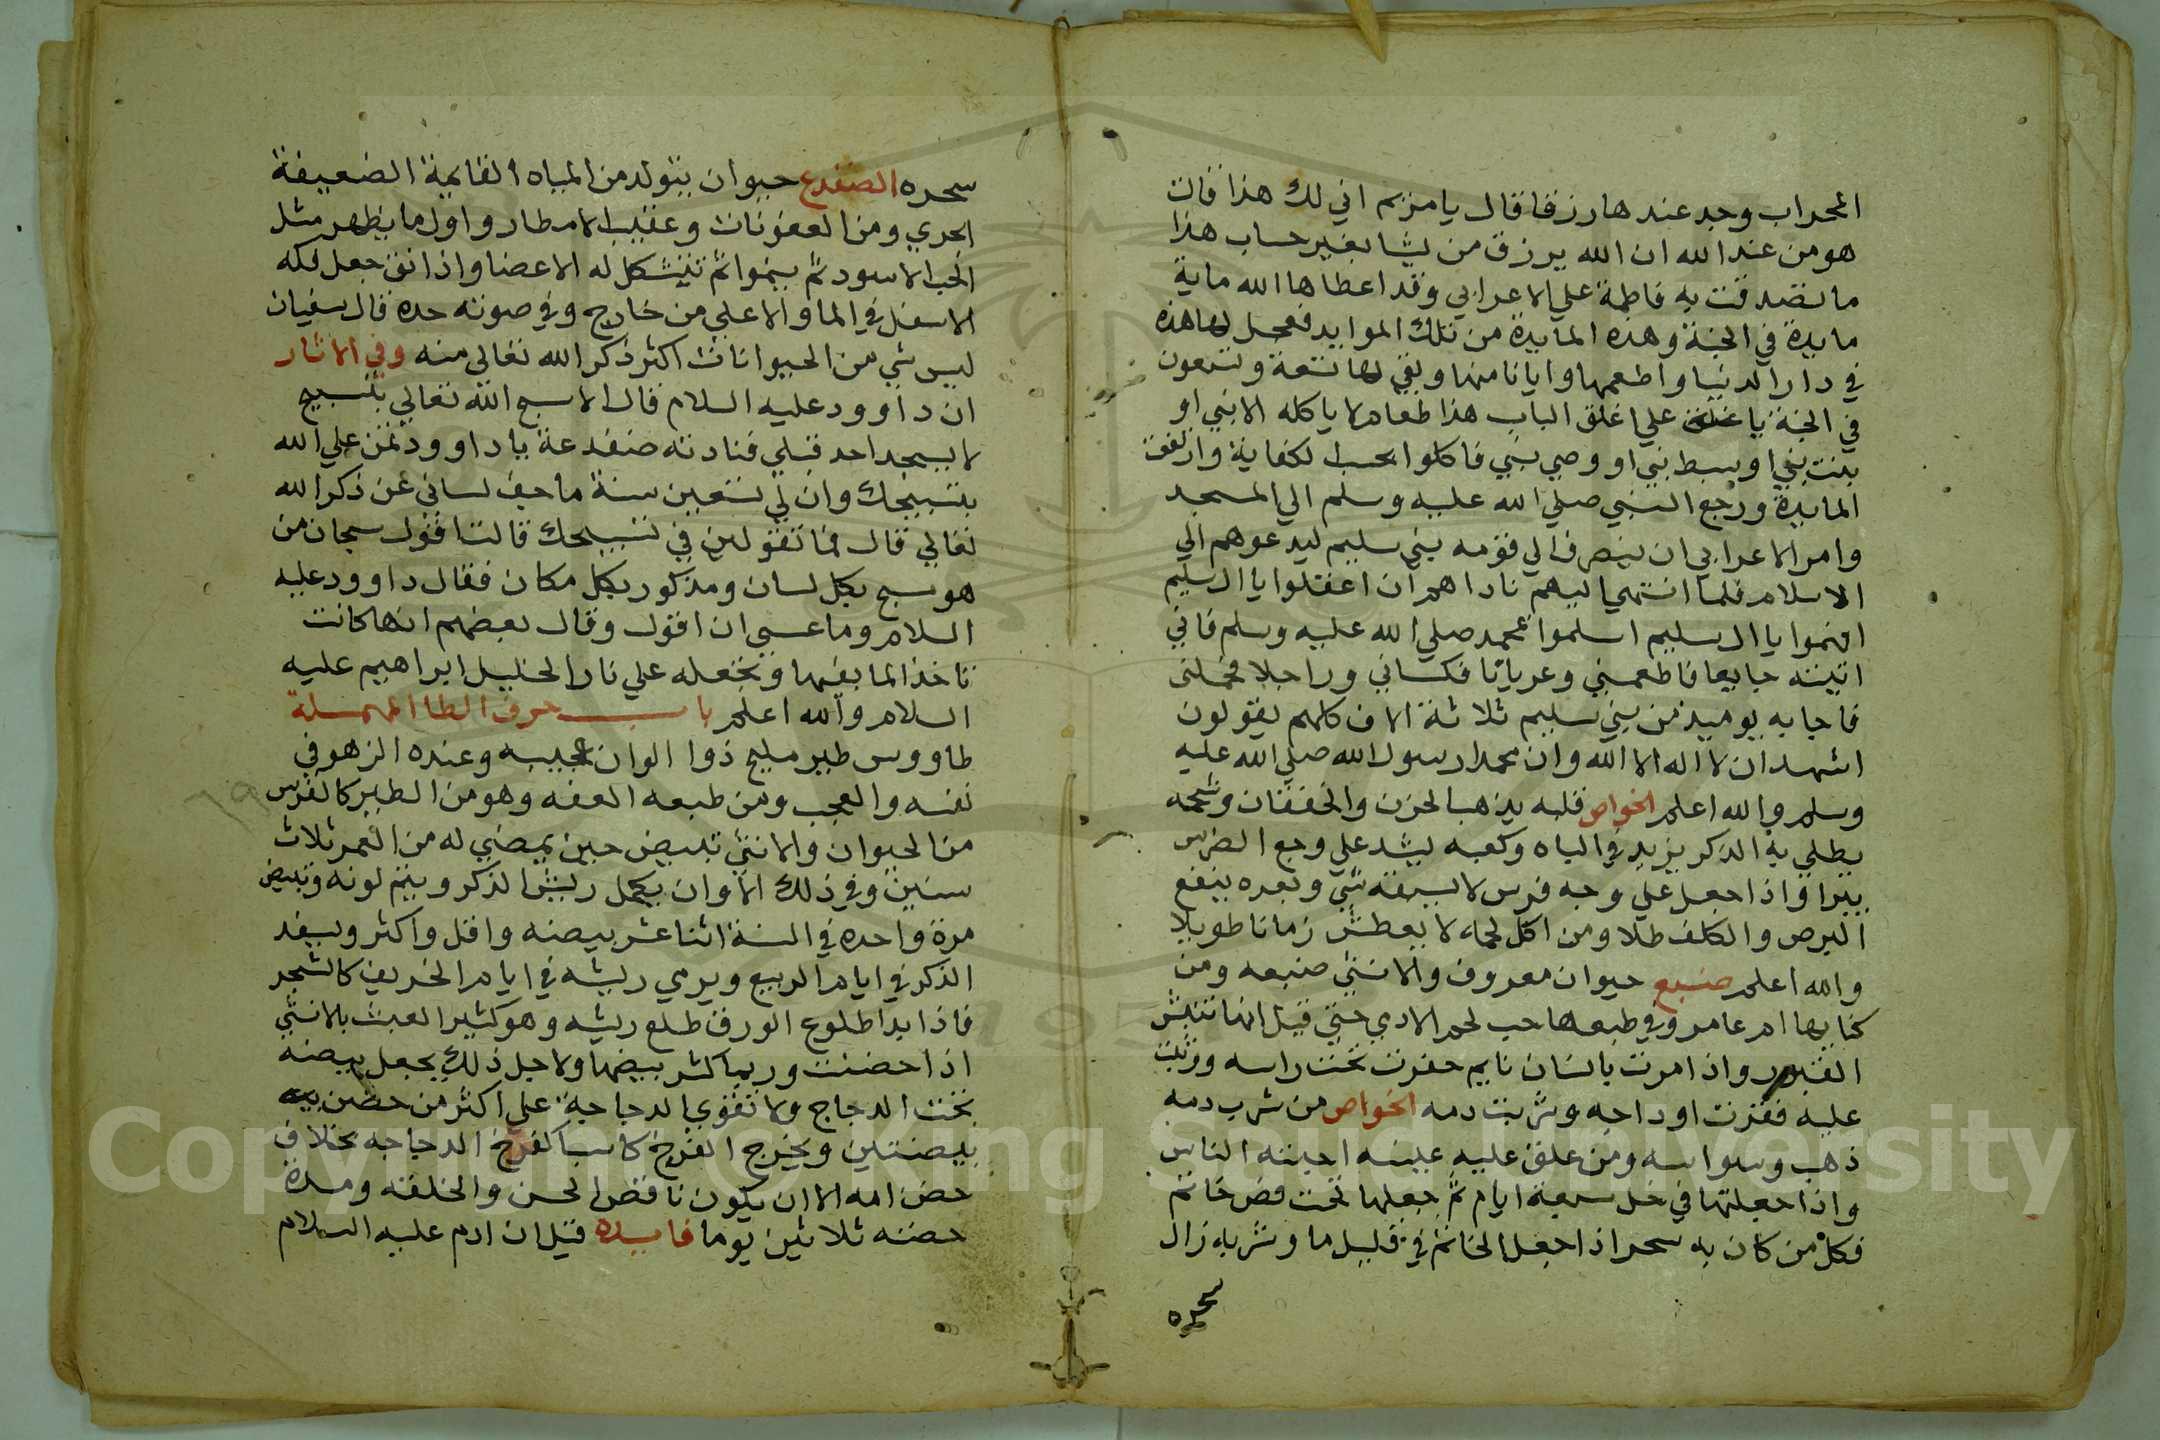 المحراب وجد عندها رزقا قال يا مريم اني لك هذا قالت
هو من عند الله ان الله يرزق من يشا بغير حساب هذا
ما تصدقت به فاطمة علي الاعرابي وقد اعطاها الله ماية
مايدة في الجنة وهذه المايدة من تلك الموايد فعجل لها هذه
في دار الدنيا واطعمها وايانا منها وبقي لها تسعة وتسعون
في الجنة يا علي اغلق الباب هذا طعام لا ياكله الا نبي او
بنت نبي او سبط نبي او وصي نبي فاكلوا بحسب لكفاية وارتفعت
المايدة ورجع النبي صلي الله عليه وسلم الي المسجد
وامر الاعرابي ان ينصرف الي قومه بني سليم ليدعوهم الي
الاسلام فلما انتهي اليهم ناداهم ان اعقلوا يا ال سليم
افهموا يا ال سليم اسلموا بمحمد صلي الله عليه وسلم فاني
اتيته جايعا فاطعمني وعريانا فكساني وراجلا فحملني
فاجابه يوميذ من بني سليم ثلاثة الاف كلهم يقولون
اشهد ان لا اله الا الله وان محمدا رسول الله صلي الله عليه
وسلم والله اعلم الخواص قلبه يذهب الحزن والخفقان وشحمه
يطلي به الذكر يزيد في الباه وكعبه يشد علي وجع الضرس
يبرا واذا جعل علي وجه فرس لا يسبقه شي وبعره ينفع
البرص والكلف طلا ومن اكل لحمه لا يعطش زمانا طويلا
والله اعلم ضبع حيوان معروف والانثي ضبعه ومن
كنايها ام عامر وفي طبعها حب لحم الادمي حتي قيل انها تنبش
القبور واذا مرت بانسان نايم حفرت تحت راسه ووثبت
عليه فقرت اوداجه وشربت دمه الخواص من شرب دمه
ذهب وسواسه ومن علق عليه عينه احبته الناس
واذا جعلتها في خل سبعة ايام ثم جعلها تحت فص خاتم
فكل من كان به سحر اذا جعل الخاتم في قليل ما وشربه زال
سحره
سحره الضفدع حيوان يتولد من المياه القايمة الضعيفة
الجري ومن العفونات وعقيب الامطار واول ما يظهر مثل
الحب الاسود ثم ينموا ثم تتشكل له الاعضا واذا نق جعل فكه
الاسفل في الما والاعلي من خارج وفي صوته حده قال سفيان
ليس شي من الحيوانات اكثر ذكر الله تعالي منه وفي الاثار
ان داوود عليه السلام قال لاسبح الله تعالي بتسبيح
لا يسبحه احد قبلي فنادته ضفدعة يا داوود تمن علي الله
بتسبيحك وان لي تسعين سنة ما جف لساني عن ذكر الله
تعالي قال فما تقولين في تسبيحك قالت اقول سبحان من
هو مسبح بكل لسان ومذكور بكل مكان فقال داوود عليه
السلام وما عسي ان اقول وقال بعضهم انها كانت
تاخذ الما بفمها وتجعله علي نار الخليل ابراهيم عليه
السلام والله اعلم باب حرف الطا المهملة
طاووس طير مليح ذوا الوان عجيبه وعنده الزهو في
نفسه والعجب ومن طبعه العفه وهو من الطير كالفرس
من الحيوان والانثي تبيض حين يمضي له من العمر ثلاث
سنين وفي ذلك الاوان يكمل ريش الذكر ويتم لونه وتبيض
مرة واحده في السنة اثنا عشر بيضه واقل واكثر ويسفد
الذكر في ايام الربيع ويرمي ريشه في ايام الخريف كالشجر
فاذا بدا طلوع الورق طلع ريشه وهو كثير العبث بالانثي
اذا حضنت وربما كسر بيضها ولاجل ذلك يجعل بيضه
تحت الدجاج ولا تقوي الدجاجة علي اكثر من حضن
بيضتين ويخرج الفرخ كاسيا كفرخ الدجاجه بخلاف
حضن امه الا ان يكون ناقص الحسن والخلقه ومدة
حضنه ثلاثين يوما فايده قيل ان ادم عليه السلام
Copyright © King Saud University